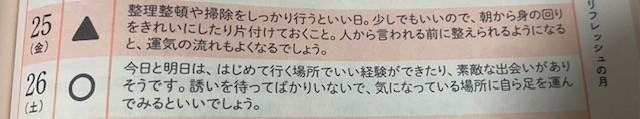 25
(金)
▲
整理整頓や掃除をしっかり行うといい日。少しでもいいので、朝から身の回り
をきれいにしたり片付けておくこと。人から言われる前に整えられるようになる
と、運気の流れもよくなるでしょう。
26
(土)
○
今日と明日は、はじめて行く場所でいい経験ができたり、素敵な出会いがあり
そうです。誘いを待ってばかりいないで、気になっている場所に自ら足を運ん
でみるといいでしょう。
リフレッシュの月